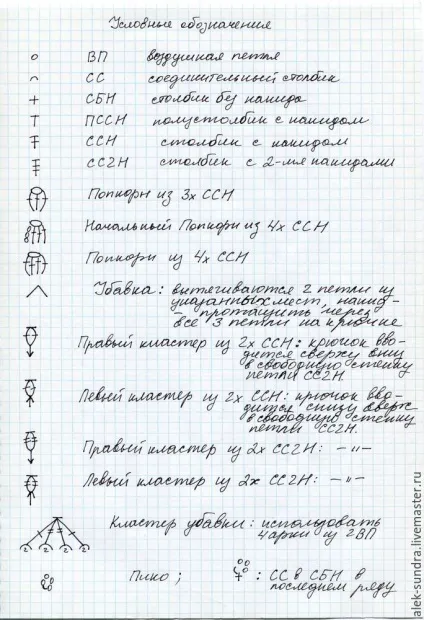 Условные обозначения
ВП воздушная петля
СС соединительный столбик
СБН столбик без накида
ПССН полустолбик с накидом
ССН столбик с накидом
СС2Н столбик с 2-мя накидами
Попкорн из 3х ССН
Начальный Попкорн из 4х ССН
Попкорн из 4х ССН
Убавка: вытягиваются 2 петли из
указанных мест, накид -
протащить через
все 3 петли на крючке
Правый кластер из 2х ССН: крючок вво-
дится сверху вниз
в свободную стенку
петли СС2Н.
Левый кластер из 2х ССН: крючок вво-
дится снизу вверх
в свободную стенку
петли СС2Н.
Правый кластер из 2х СС2Н: —"—
Левый кластер из 2х СС2Н: —"—
Кластер убавки: использовать
4 арки из 2ВП
2 2 2 2
Пико; : СС в СБН в
последнем ряду
alek-sundra.livemaster.ru